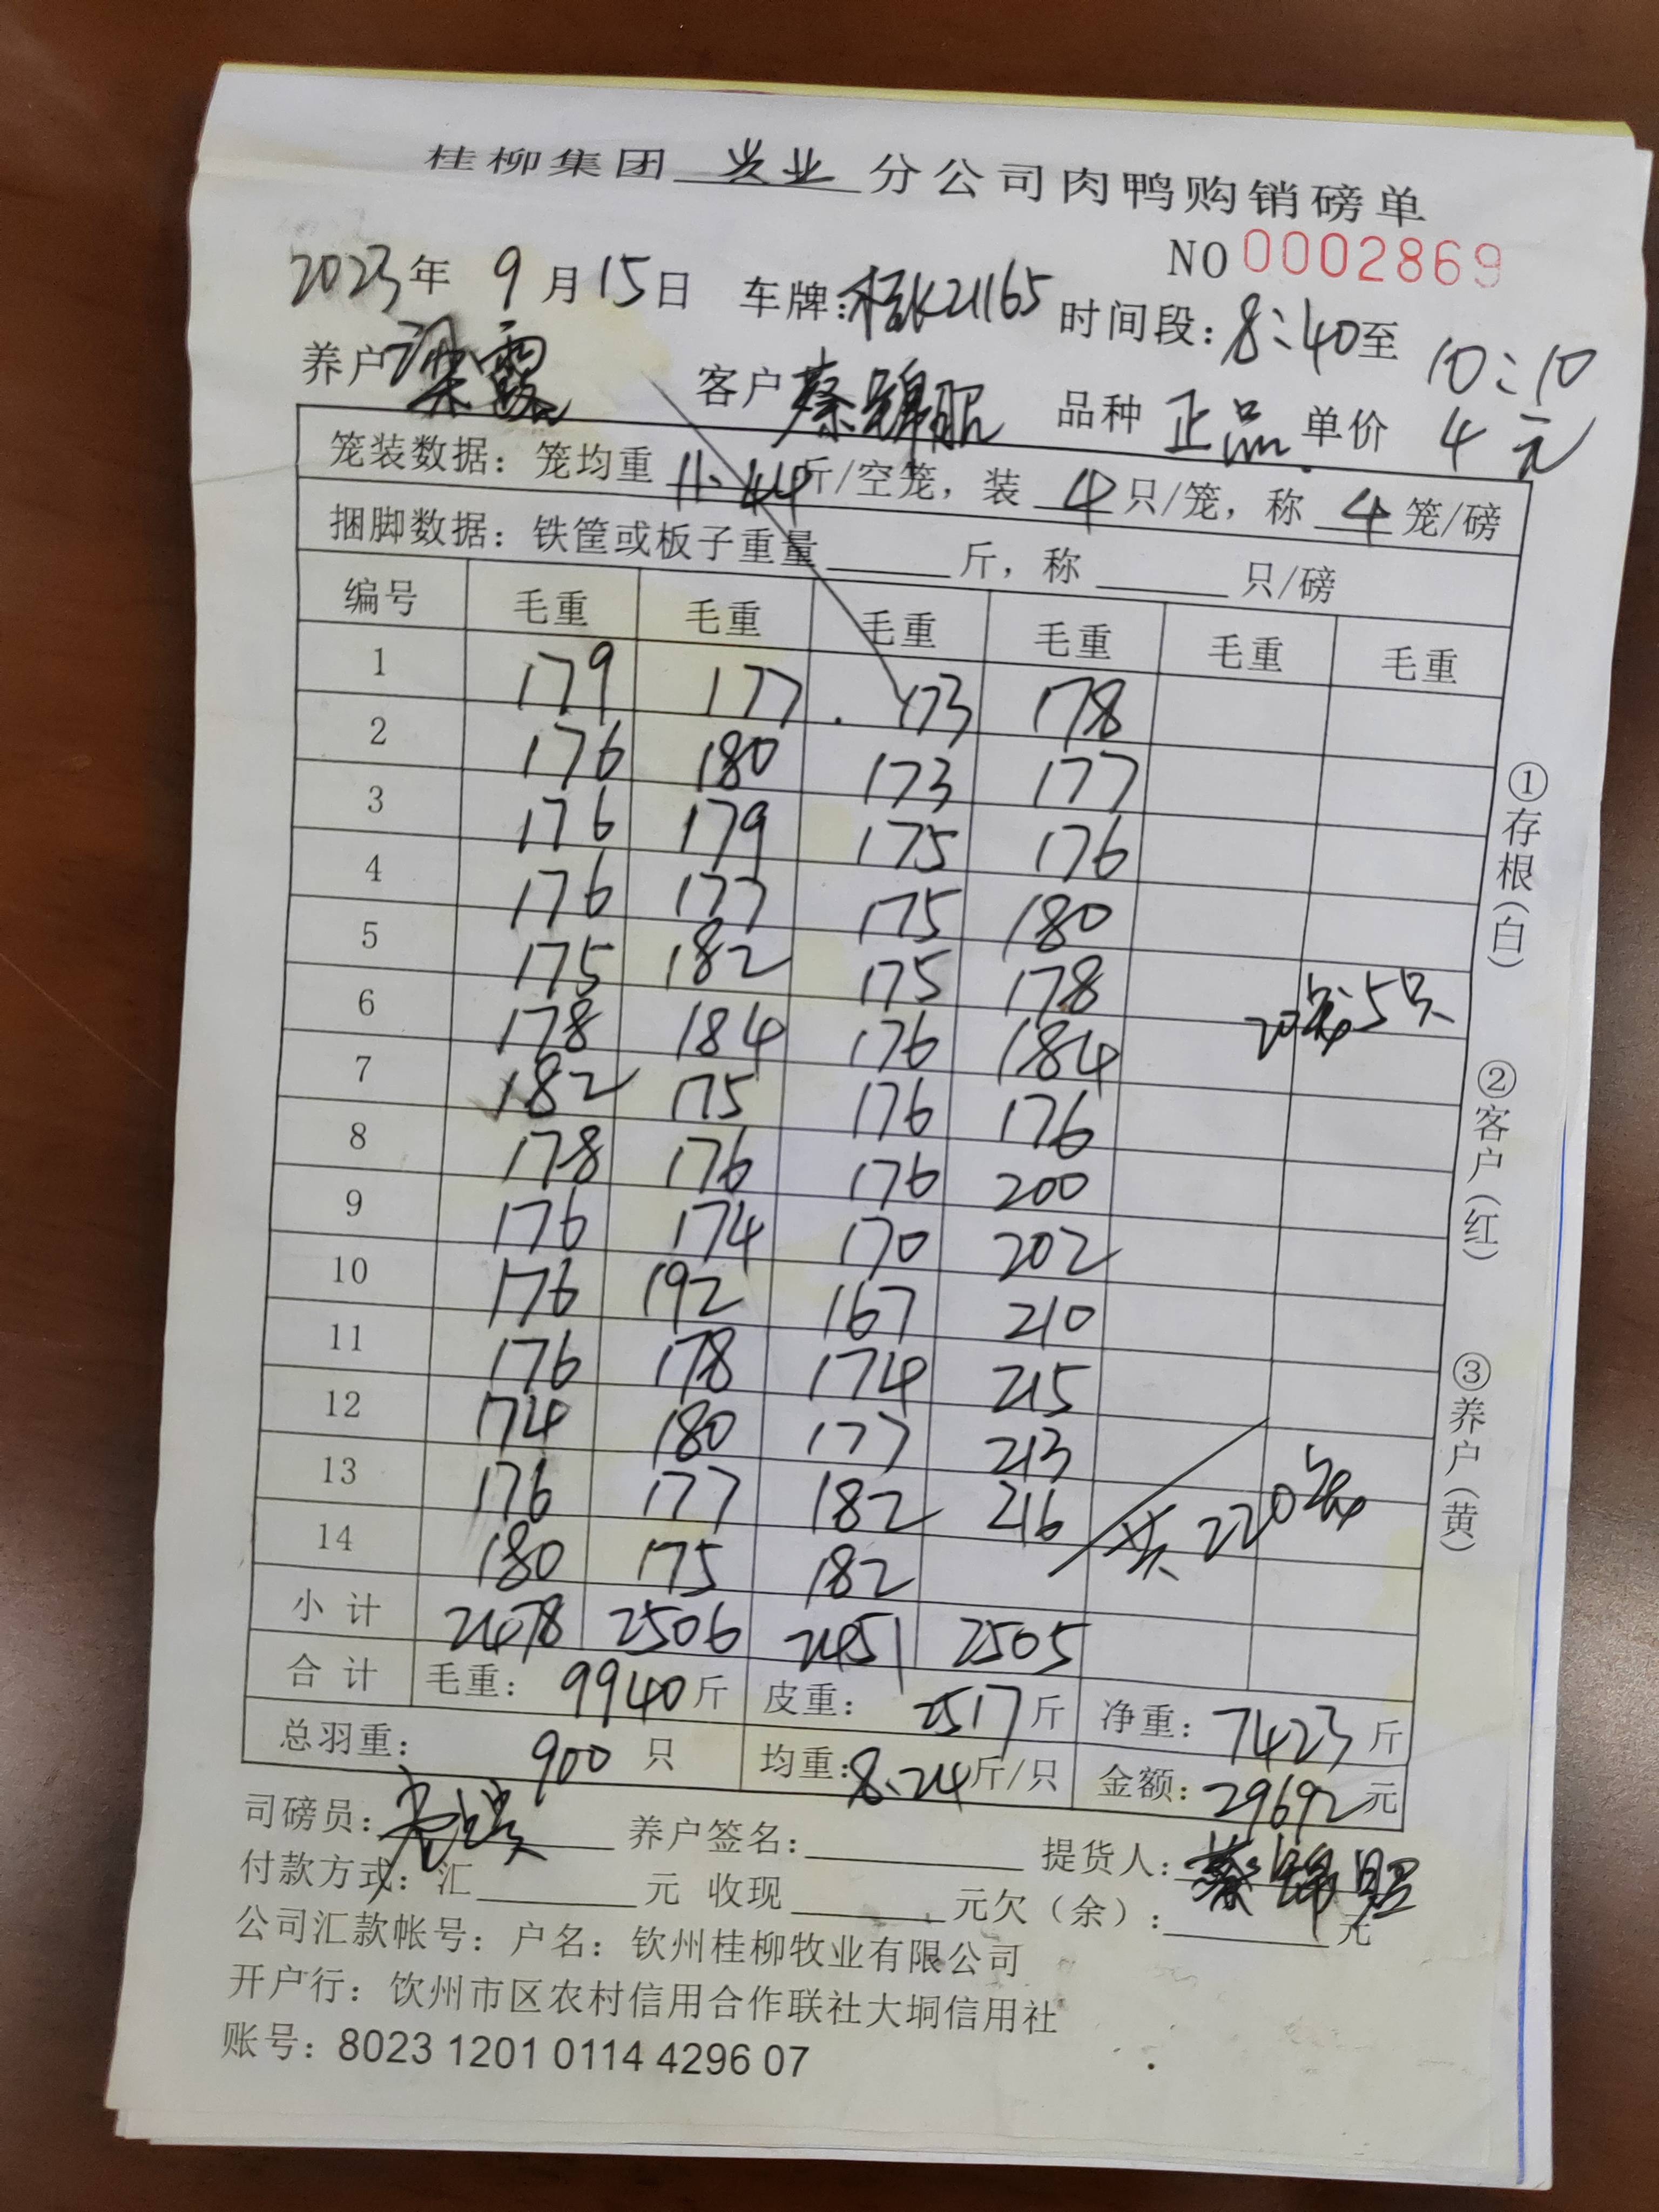 桂柳集团 兴业 分公司肉鸭购销磅单
NO 0002869
2023年 9月15日 车牌:桂K21165 时间段:8:40至 10:10
养户 梁霞 客户 蔡锦昭 品种 正品 单价 4元
笼装数据:笼均重 11.44 斤/空笼,装 4 只/笼,称 4 笼/磅
捆脚数据:铁筐或板子重量 斤,称 只/磅
编号 毛重 毛重 毛重 毛重 毛重 毛重
1 179 177 173 178
2 176 180 173 177
3 176 179 175 176
4 176 177 175 180
5 175 182 175 178
6 178 184 176 184
7 182 175 176 176
8 178 176 176 200
9 176 174 170 202
10 176 192 167 210
11 176 178 174 215
12 174 180 177 213
13 176 177 182 216
14 180 175 182
20笼5只
共220笼
小计 2478 2506 2451 2505
合计 毛重:9940斤 皮重:2517斤 净重:7423斤
总羽重:900只 均重:8.24斤/只 金额:29692元
司磅员: 养户签名: 提货人:蔡锦昭
付款方式:汇 元 收现 元欠(余): 元
公司汇款帐号:户名:钦州桂柳牧业有限公司
开户行:钦州市区农村信用合作联社大垌信用社
账号:8023 1201 0114 4296 07
①存根(白)
②客户(红)
③养户(黄)